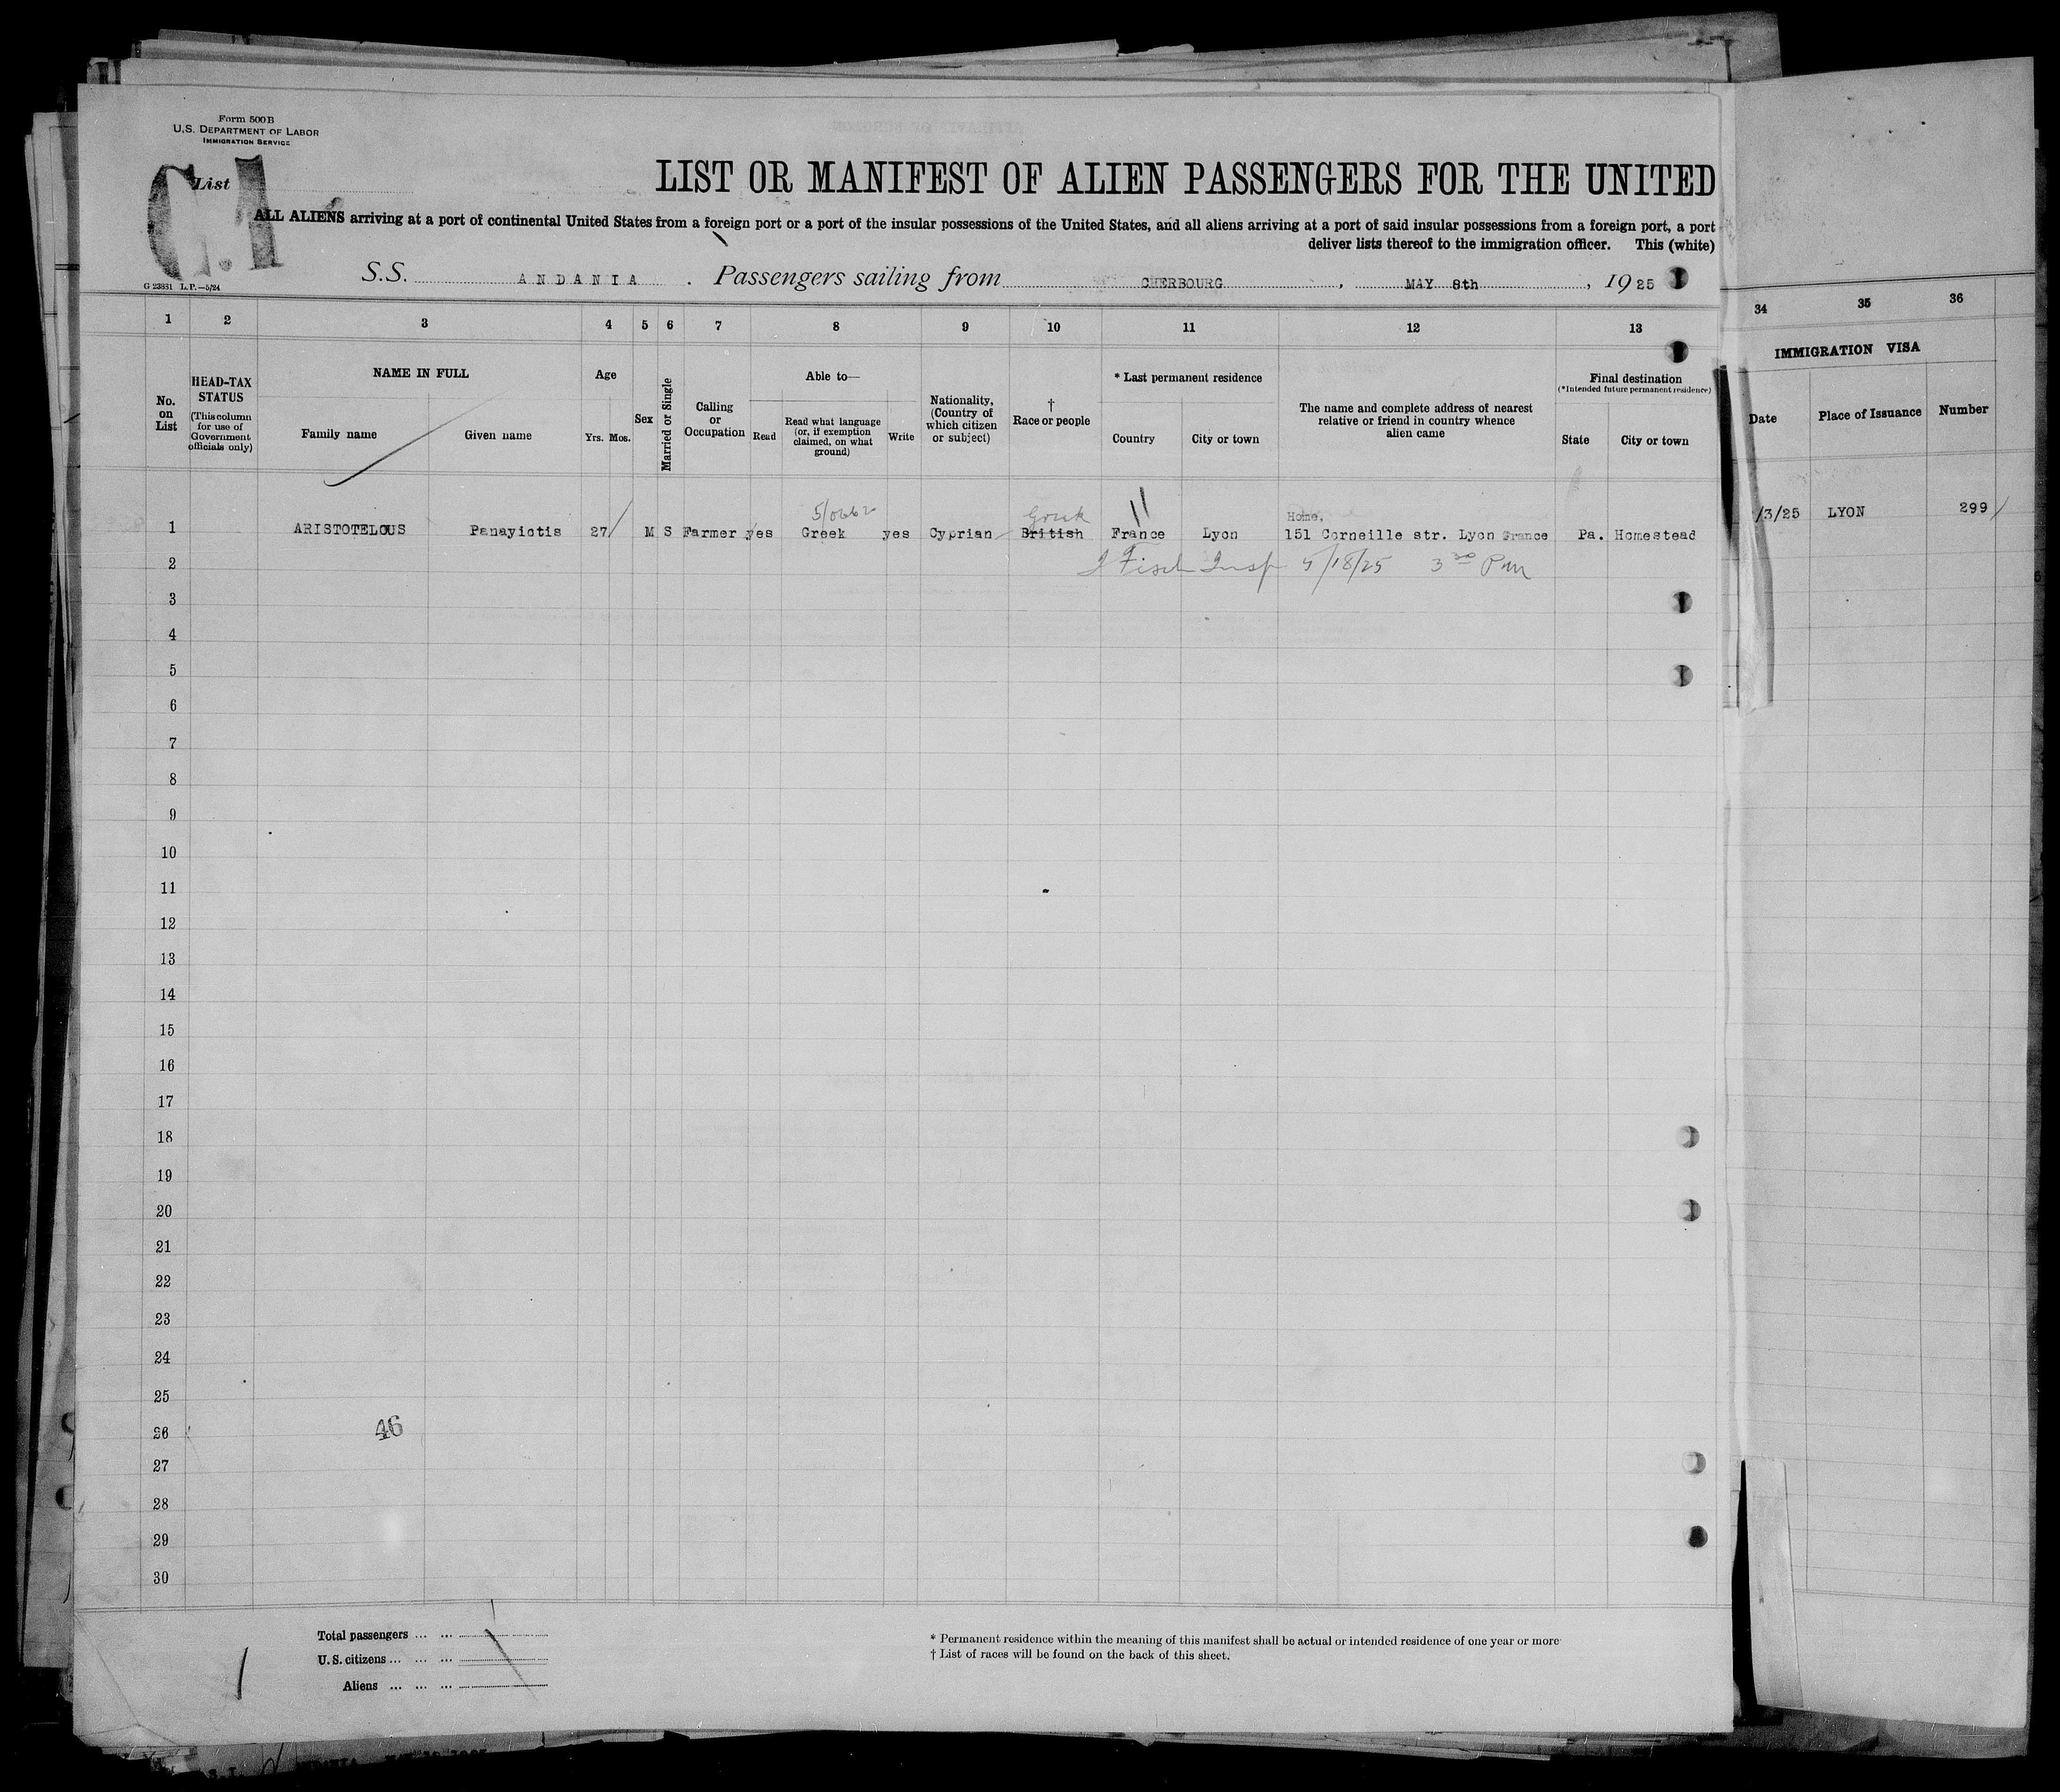 Form 500B
U.S. DEPARTMENT OF LABOR
IMMIGRATION SERVICE
C.I
List
LIST OR MANIFEST OF ALIEN PASSENGERS FOR THE UNITED
ALL ALIENS arriving at a port of continental United States from a foreign port or a port of the insular possessions of the United States, and all aliens arriving at a port of said insular possessions from a foreign port, a port
deliver lists thereof to the immigration officer. This (white)
S.S. ANDANIA . Passengers sailing from CHERBOURG , MAY 8th , 1925
G 23881 L.P.—5/24
1 2 3 4 5 6 7 8 9 10 11 12 13
34 35 36
IMMIGRATION VISA
Date Place of Issuance Number
No. on List
HEAD-TAX STATUS
(This column for use of Government officials only)
NAME IN FULL
Family name Given name
Age
Yrs. Mos.
Sex
Married or Single
Calling or Occupation
Able to—
Read
Read what language (or, if exemption claimed, on what ground)
Write
Nationality, (Country of which citizen or subject)
† Race or people
* Last permanent residence
Country City or town
The name and complete address of nearest relative or friend in country whence alien came
Final destination
(*Intended future permanent residence)
State City or town
Greek
Home,
1 ARISTOTELOUS Panayiotis 27 M S Farmer yes Greek yes Cyprian British France Lyon 151 Corneille str. Lyon France Pa. Homestead
/3/25 LYON 299
2 Insp 5/18/25 3
3
4
5
6
7
8
9
10
11
12
13
14
15
16
17
18
19
20
21
22
23
24
25
26 46
27
28
29
30
Total passengers ... ...
U.S. citizens ... ... ...
Aliens ... ... ...
* Permanent residence within the meaning of this manifest shall be actual or intended residence of one year or more
† List of races will be found on the back of this sheet.